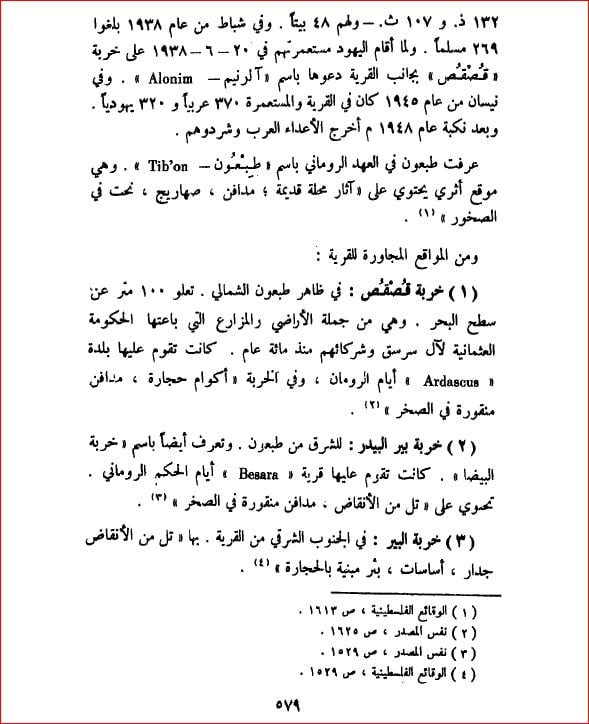 ١٣٢ ذ. و ١٠٧ ث. – ولهم ٤٨ بيتاً . وفي شباط من عام ١٩٣٨ بلغوا
٢٦٩ مسلماً . ولما أقام اليهود مستعمرتهم في ٢٠ – ٦ – ١٩٣٨ على خربة
« قُـصْقُـص » بجانب القرية دعوها باسم « آلرنيم – Alonim » . وفي
نيسان من عام ١٩٤٥ كان في القرية والمستعمرة ٣٧٠ عربياً و ٣٢٠ يهودياً .
وبعد نكبة عام ١٩٤٨ م أخرج الأعداء العرب وشردوهم .
عرفت طبعون في العهد الروماني باسم « طبِعْـُون – Tib'on » . وهي
موقع أثري يحتوي على « آثار محلة قديمة ؛ مدافن ، صهاريج ، نحت في
الصخور » (١) .
ومن المواقع المجاورة للقرية :
(١) خربة قُـصْقُـص : في ظاهر طبعون الشمالي . تعلو ١٠٠ متر عن
سطح البحر . وهي من جملة الأراضي والمزارع التي باعتها الحكومة
العثمانية لآل سرسق وشركائهم منذ مائة عام . كانت تقوم عليها بلدة
« Ardascus » أيام الرومان ، وفي الخربة « أكوام حجارة ، مدافن
منقورة في الصخر » (٢) .
(٢) خربة بير البيدر : للشرق من طبعون . وتعرف أيضاً باسم « خربة
البيضا » . كانت تقوم عليها قرية « Besara » أيام الحكم الروماني .
تحتوي على « تل من الأنقاض ، مدافن منقورة في الصخر » (٣) .
(٣) خربة البير : في الجنوب الشرقي من القرية . بها « تل من الأنقاض
جدار ، أساسات ، بئر مبنية بالحجارة » (٤) .
(١) الوقائع الفلسطينية ، ص ١٦١٣ .
(٢) نفس المصدر ، ص ١٦٢٥ .
(٣) نفس المصدر ، ص ١٥٢٩ .
(٤) الوقائع الفلسطينية ، ص ١٥٢٩ .
٥٧٩